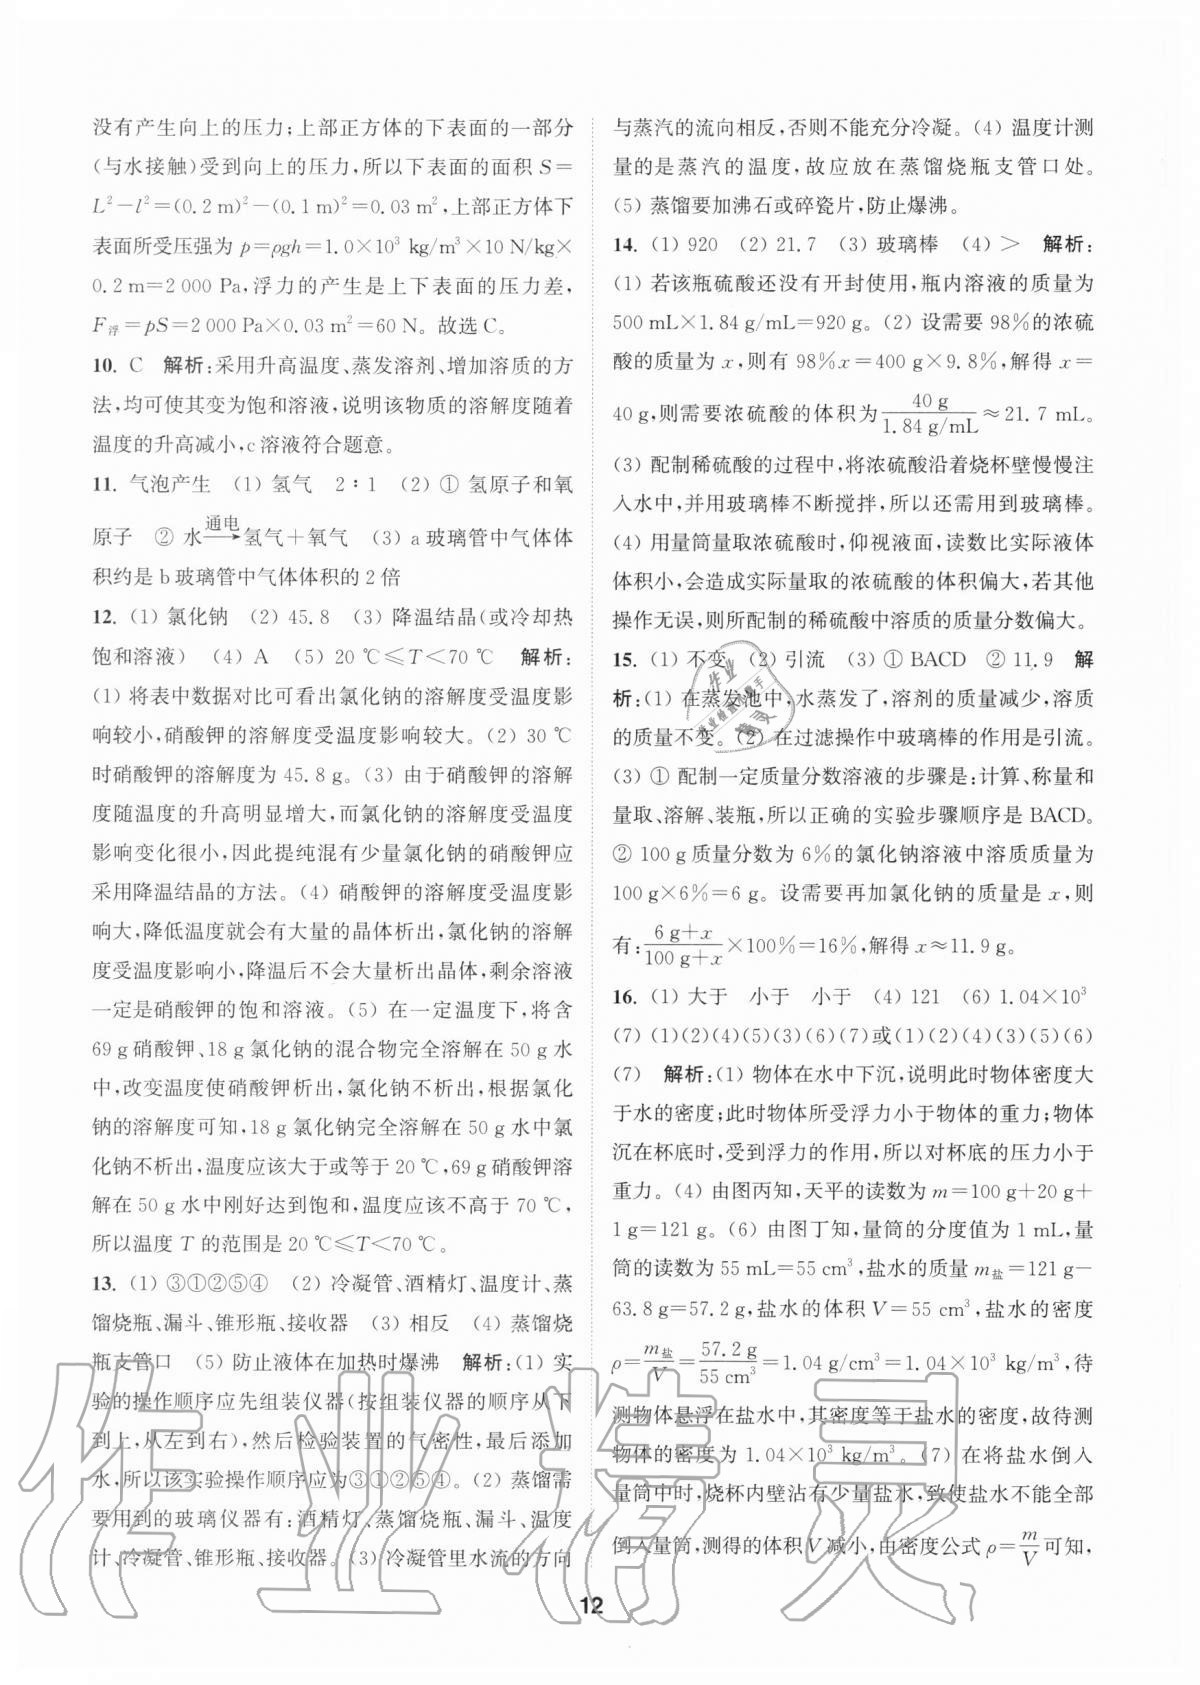 没有产生向上的压力;上部正方体的下表面的一部分
(与水接触)受到向上的压力,所以下表面的面积 S=
L²-l²=(0.2 m)²-(0.1 m)²=0.03 m²,上部正方体下
表面所受压强为 p=ρgh=1.0×10³ kg/m³×10 N/kg×
0.2 m=2 000 Pa,浮力的产生是上下表面的压力差,
F浮=pS=2 000 Pa×0.03 m²=60 N。故选 C。
10. C 解析:采用升高温度、蒸发溶剂、增加溶质的方
法,均可使其变为饱和溶液,说明该物质的溶解度随着
温度的升高减小,c 溶液符合题意。
11. 气泡产生 (1) 氢气 2∶1 (2) ① 氢原子和氧
原子 ② 水 通电→ 氢气+氧气 (3) a 玻璃管中气体体
积约是 b 玻璃管中气体体积的 2 倍
12. (1) 氯化钠 (2) 45.8 (3) 降温结晶(或冷却热
饱和溶液) (4) A (5) 20 ℃≤T<70 ℃ 解析:
(1) 将表中数据对比可看出氯化钠的溶解度受温度影
响较小,硝酸钾的溶解度受温度影响较大。(2) 30 ℃
时硝酸钾的溶解度为 45.8 g。(3) 由于硝酸钾的溶解
度随温度的升高明显增大,而氯化钠的溶解度受温度
影响变化很小,因此提纯混有少量氯化钠的硝酸钾应
采用降温结晶的方法。(4) 硝酸钾的溶解度受温度影
响大,降低温度就会有大量的晶体析出,氯化钠的溶解
度受温度影响小,降温后不会大量析出晶体,剩余溶液
一定是硝酸钾的饱和溶液。(5) 在一定温度下,将含
69 g 硝酸钾、18 g 氯化钠的混合物完全溶解在 50 g 水
中,改变温度使硝酸钾析出,氯化钠不析出,根据氯化
钠的溶解度可知,18 g 氯化钠完全溶解在 50 g 水中氯
化钠不析出,温度应该大于或等于 20 ℃,69 g 硝酸钾溶
解在 50 g 水中刚好达到饱和,温度应该不高于 70 ℃,
所以温度 T 的范围是 20 ℃≤T<70 ℃。
13. (1) ③①②⑤④ (2) 冷凝管、酒精灯、温度计、蒸
馏烧瓶、漏斗、锥形瓶、接收器 (3) 相反 (4) 蒸馏烧
瓶支管口 (5) 防止液体在加热时爆沸 解析:(1) 实
验的操作顺序应先组装仪器(按组装仪器的顺序从下
到上,从左到右),然后检验装置的气密性,最后添加
水,所以该实验操作顺序应为③①②⑤④。(2) 蒸馏需
要用到的玻璃仪器有:酒精灯、蒸馏烧瓶、漏斗、温度
计、冷凝管、锥形瓶、接收器。(3) 冷凝管里水流的方向
与蒸汽的流向相反,否则不能充分冷凝。(4) 温度计测
量的是蒸汽的温度,故应放在蒸馏烧瓶支管口处。
(5) 蒸馏要加沸石或碎瓷片,防止爆沸。
14. (1) 920 (2) 21.7 (3) 玻璃棒 (4) > 解析:
(1) 若该瓶硫酸还没有开封使用,瓶内溶液的质量为
500 mL×1.84 g/mL=920 g。(2) 设需要 98%的浓硫
酸的质量为 x,则有 98%x=400 g×9.8%,解得 x=
40 g,则需要浓硫酸的体积为 40 g/1.84 g/mL ≈21.7 mL。
(3) 配制稀硫酸的过程中,将浓硫酸沿着烧杯壁慢慢注
入水中,并用玻璃棒不断搅拌,所以还需用到玻璃棒。
(4) 用量筒量取浓硫酸时,仰视液面,读数比实际液体
体积小,会造成实际量取的浓硫酸的体积偏大,若其他
操作无误,则所配制的稀硫酸中溶质的质量分数偏大。
15. (1) 不变 (2) 引流 (3) ① BACD ② 11.9 解
析:(1) 在蒸发池中,水蒸发了,溶剂的质量减少,溶质
的质量不变。(2) 在过滤操作中玻璃棒的作用是引流。
(3) ① 配制一定质量分数溶液的步骤是:计算、称量和
量取、溶解、装瓶,所以正确的实验步骤顺序是 BACD。
② 100 g 质量分数为 6%的氯化钠溶液中溶质质量为
100 g×6%=6 g。设需要再加氯化钠的质量是 x,则
有: 6 g+x/100 g+x ×100%=16%,解得 x≈11.9 g。
16. (1) 大于 小于 小于 (4) 121 (6) 1.04×10³
(7) (1)(2)(4)(5)(3)(6)(7)或(1)(2)(4)(3)(5)(6)
(7) 解析:(1) 物体在水中下沉,说明此时物体密度大
于水的密度;此时物体所受浮力小于物体的重力;物体
沉在杯底时,受到浮力的作用,所以对杯底的压力小于
重力。(4) 由图丙知,天平的读数为 m=100 g+20 g+
1 g=121 g。(6) 由图丁知,量筒的分度值为 1 mL,量
筒的读数为 55 mL=55 cm³,盐水的质量 m盐=121 g-
63.8 g=57.2 g,盐水的体积 V=55 cm³,盐水的密度
ρ= m盐/V = 57.2 g/55 cm³ =1.04 g/cm³=1.04×10³ kg/m³,待
测物体悬浮在盐水中,其密度等于盐水的密度,故待测
物体的密度为 1.04×10³ kg/m³。(7) 在将盐水倒入
量筒中时,烧杯内壁沾有少量盐水,致使盐水不能全部
倒入量筒,测得的体积 V 减小,由密度公式 ρ= m/V 可知,
12
作业精灵